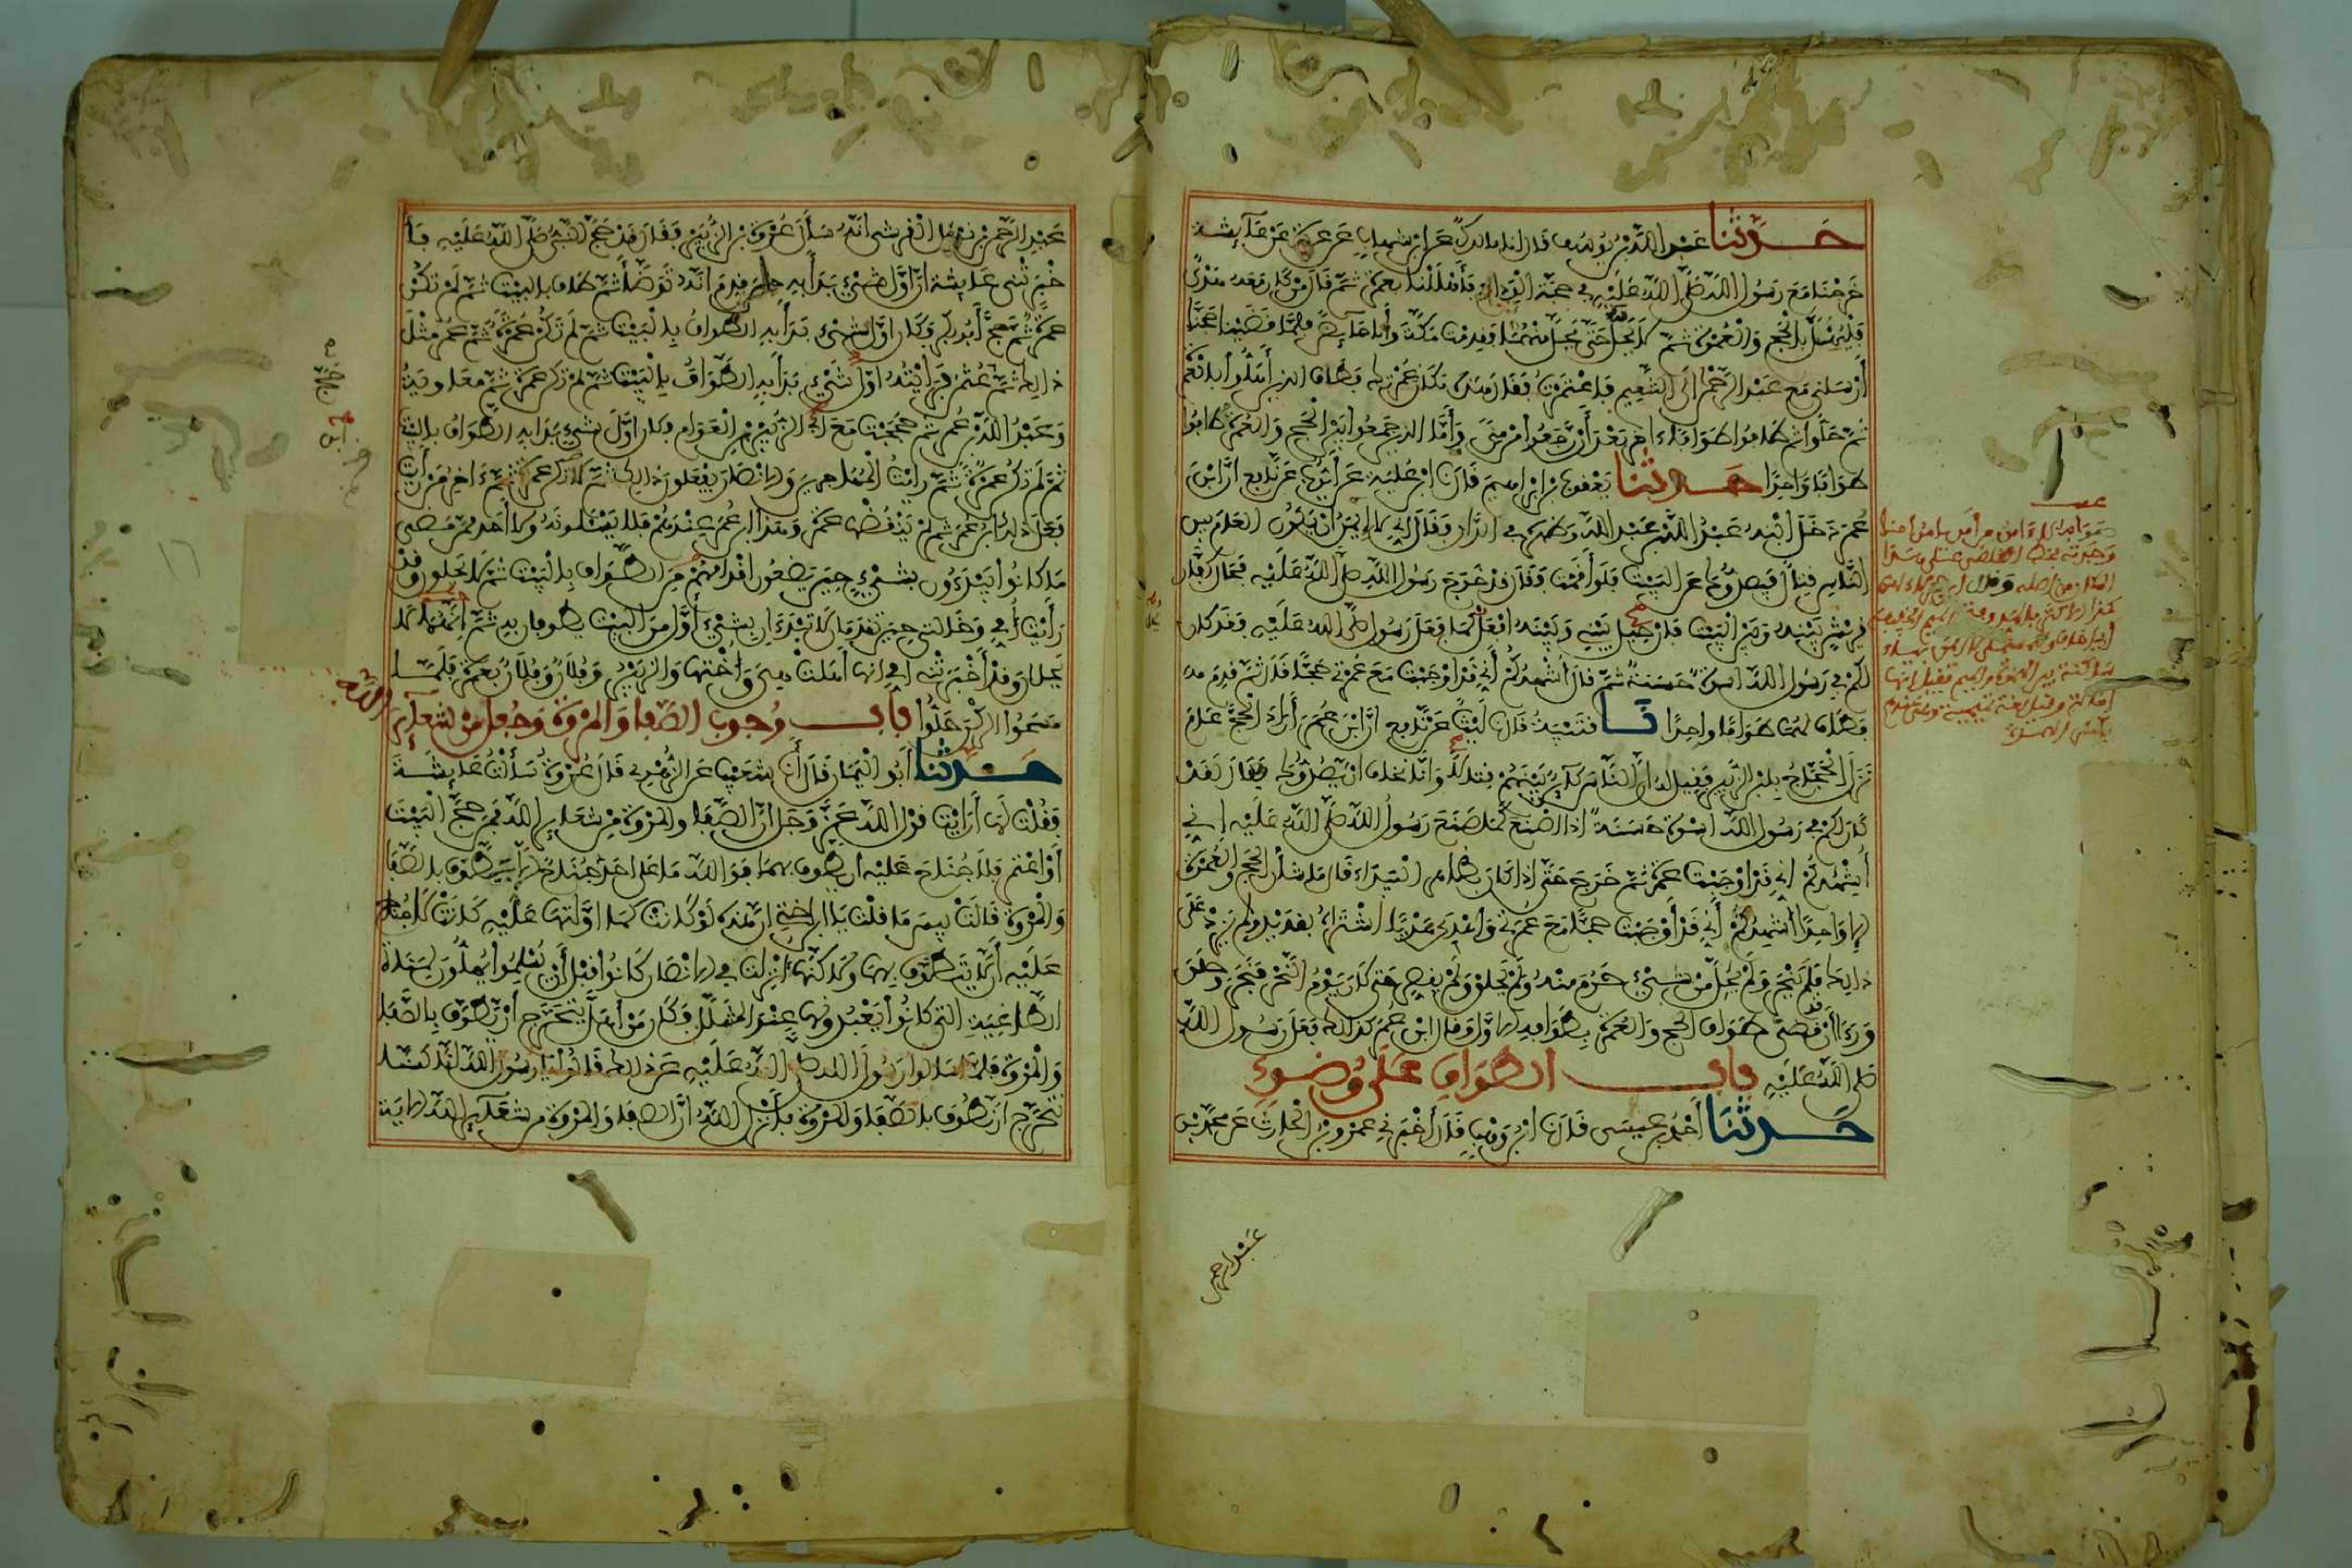 حدثنا عبد الله بن يوسف قال انا مالك عن ابن شهاب عن عروة عن عائشة
خرجنا مع رسول الله صلى الله عليه في حجة الوداع فأهللنا بعمرة ثم قال من كان معه هدي
فليهل بالحج والعمرة ثم لا يحل حتى يحل منهما فقدمت مكة وأنا حائض فلما قضينا حجنا
أرسلني مع عبد الرحمن الى التنعيم فاعتمرت فقال هذه مكان عمرتك فطاف الذين أهلوا بالعمرة
ثم حلوا ثم طافوا طوافا اخر بعد أن رجعوا من منى وأما الذين جمعوا بين الحج والعمرة طافوا
طوافا واحدا حدثنا يعقوب بن ابراهيم قال نا ابن علية عن أيوب عن نافع ان ابن
عمر دخل ابنه عبد الله بن عبد الله وظهره في الدار فقال اني لا إيمن أن يكون العام بين
الناس قتال فيصدوك عن البيت فلو أقمت فقال قد خرج رسول الله صلى الله عليه فحال كفار
قريش بينه وبين البيت فان حيل بيني وبينه افعل كما فعل رسول الله صلى الله عليه فقد كان
لكم في رسول الله اسوة حسنة ثم قال أشهدكم أني قد اوجبت مع عمرتي حجا قال ثم قدم
فطاف لهما طوافا واحدا نا قتيبة قال نا ليث عن نافع ان ابن عمر أراد الحج عام
نزل الحجاج بابن الزبير فقيل له ان الناس كائن بينهم قتال وانا نخاف ان يصدوك فقال لقد
كان لكم في رسول الله اسوة حسنة اذا اصنع كما صنع رسول الله صلى الله عليه إني
أشهدكم اني قد اوجبت عمرة ثم خرج حتى اذا كان بظاهر البيداء قال ما شأن الحج والعمرة
الا واحدا أشهدكم أني قد أوجبت حجا مع عمرتي وأهدى هديا اشتراه بقديد ولم يزد على
ذلك فلم ينحر ولم يحل من شيء حرم منه ولم يحلق ولم يقصر حتى كان يوم النحر فنحر وحلق
ورءا أن قد قضى طواف الحج والعمرة بطوافه الاول وقال ابن عمر كذلك فعل رسول الله
صلى الله عليه باب الطواف على وضوء
حدثنا أحمد بن عيسى قال نا ابن وهب قال أخبرني عمرو بن الحارث عن محمد بن
عبد الرحمن
عبد الرحمن بن نوفل القرشي انه سأل عروة بن الزبير فقال قد حج النبي صلى الله عليه فأ
خبرتني عائشة ان اول شيء بدأ به حين قدم انه توضأ ثم طاف بالبيت ثم لم تكن
عمرة ثم حج أبو بكر فكان اول شيء بدأ به الطواف بالبيت ثم لم تكن عمرة ثم عمر مثل
ذلك ثم حج عثمن فرأيته اول شيء بدأ به الطواف بالبيت ثم لم تكن عمرة ثم معاوية
وعبد الله بن عمر ثم حججت مع ابي الزبير بن العوام فكان اول شيء بدأ به الطواف بالبيت
ثم لم تكن عمرة ثم رأيت المهاجرين والانصار يفعلون ذلك ثم لا تكن عمرة ثم اخر من رأيت
فعل ذلك ابن عمر ثم لم ينقضها عمرة وهذا ابن عمر عندهم فلا يسئلونه ولا احد ممن مضى
ما كانوا يبدءون بشيء حين يضعون اقدامهم من الطواف بالبيت ثم لا يحلون وقد
رأيت أمي وخالتي حين تقدمان لا تبتدءان بشيء أول من البيت يطوفان به ثم انهما لا
يحلان وقد أخبرتني أمي انها أهلت هي وأختها والزبير وفلان وفلان بعمرة فلما
مسحوا الركن حلوا باب وجوب الصفا والمروة وجعل من شعائر الله
حدثنا أبو اليمان قال أنا شعيب عن الزهري قال عروة سألت عائشة
فقلت لها أرأيت قول الله عز وجل ان الصفا والمروة من شعائر الله فمن حج البيت
أو اعتمر فلا جناح عليه ان يطوف بهما فوالله ما على احد جناح الا يطوف بالصفا
والمروة قالت بيس ما قلت يا ابن اختي ان هذه لو كانت كما اولتها عليه كانت لا جناح
عليه أن لا يتطوف بهما ولكنها أنزلت في الانصار كانوا قبل أن يسلموا يهلون لمناة
الطاغية التي كانوا يعبدونها عند المشلل فكان من أهل يتحرج أن يطوف بالصفا
والمروة فلما سألوا رسول الله صلى الله عليه عن ذلك قالوا يا رسول الله انا كنا
نتحرج ان نطوف بالصفا والمروة فأنزل الله ان الصفا والمروة من شعائر الله الاية